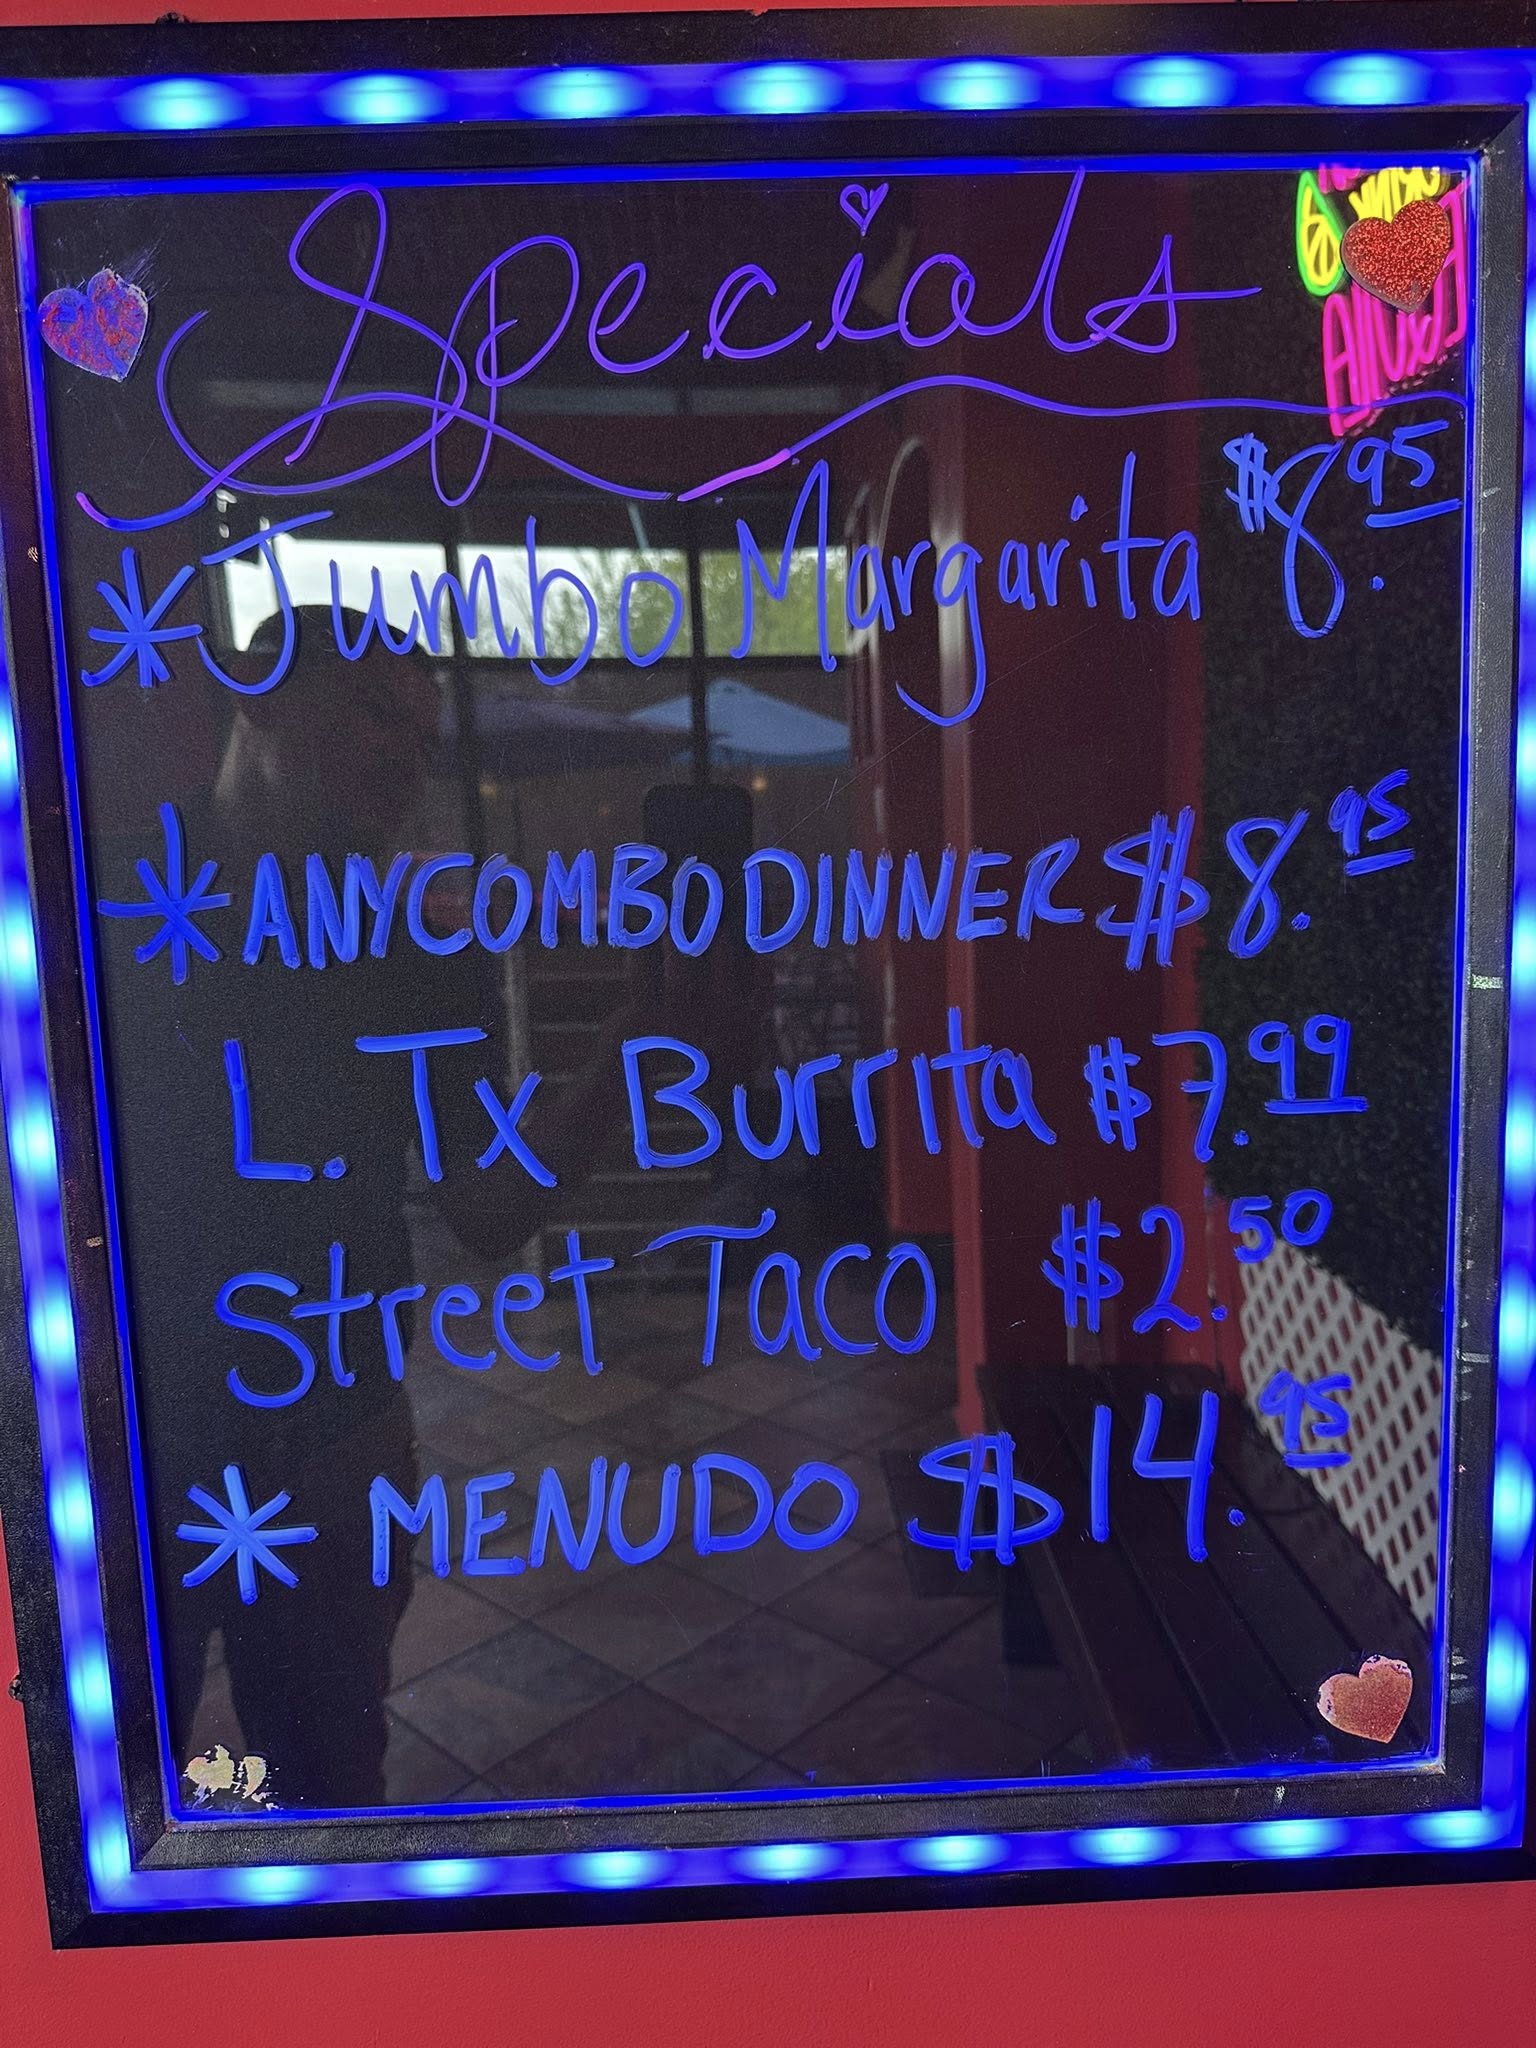 Specials
*Jumbo Margarita $8.95
*ANY COMBO DINNER $8.95
L. Tx Burrita $7.99
Street Taco $2.50
* MENUDO $14.95